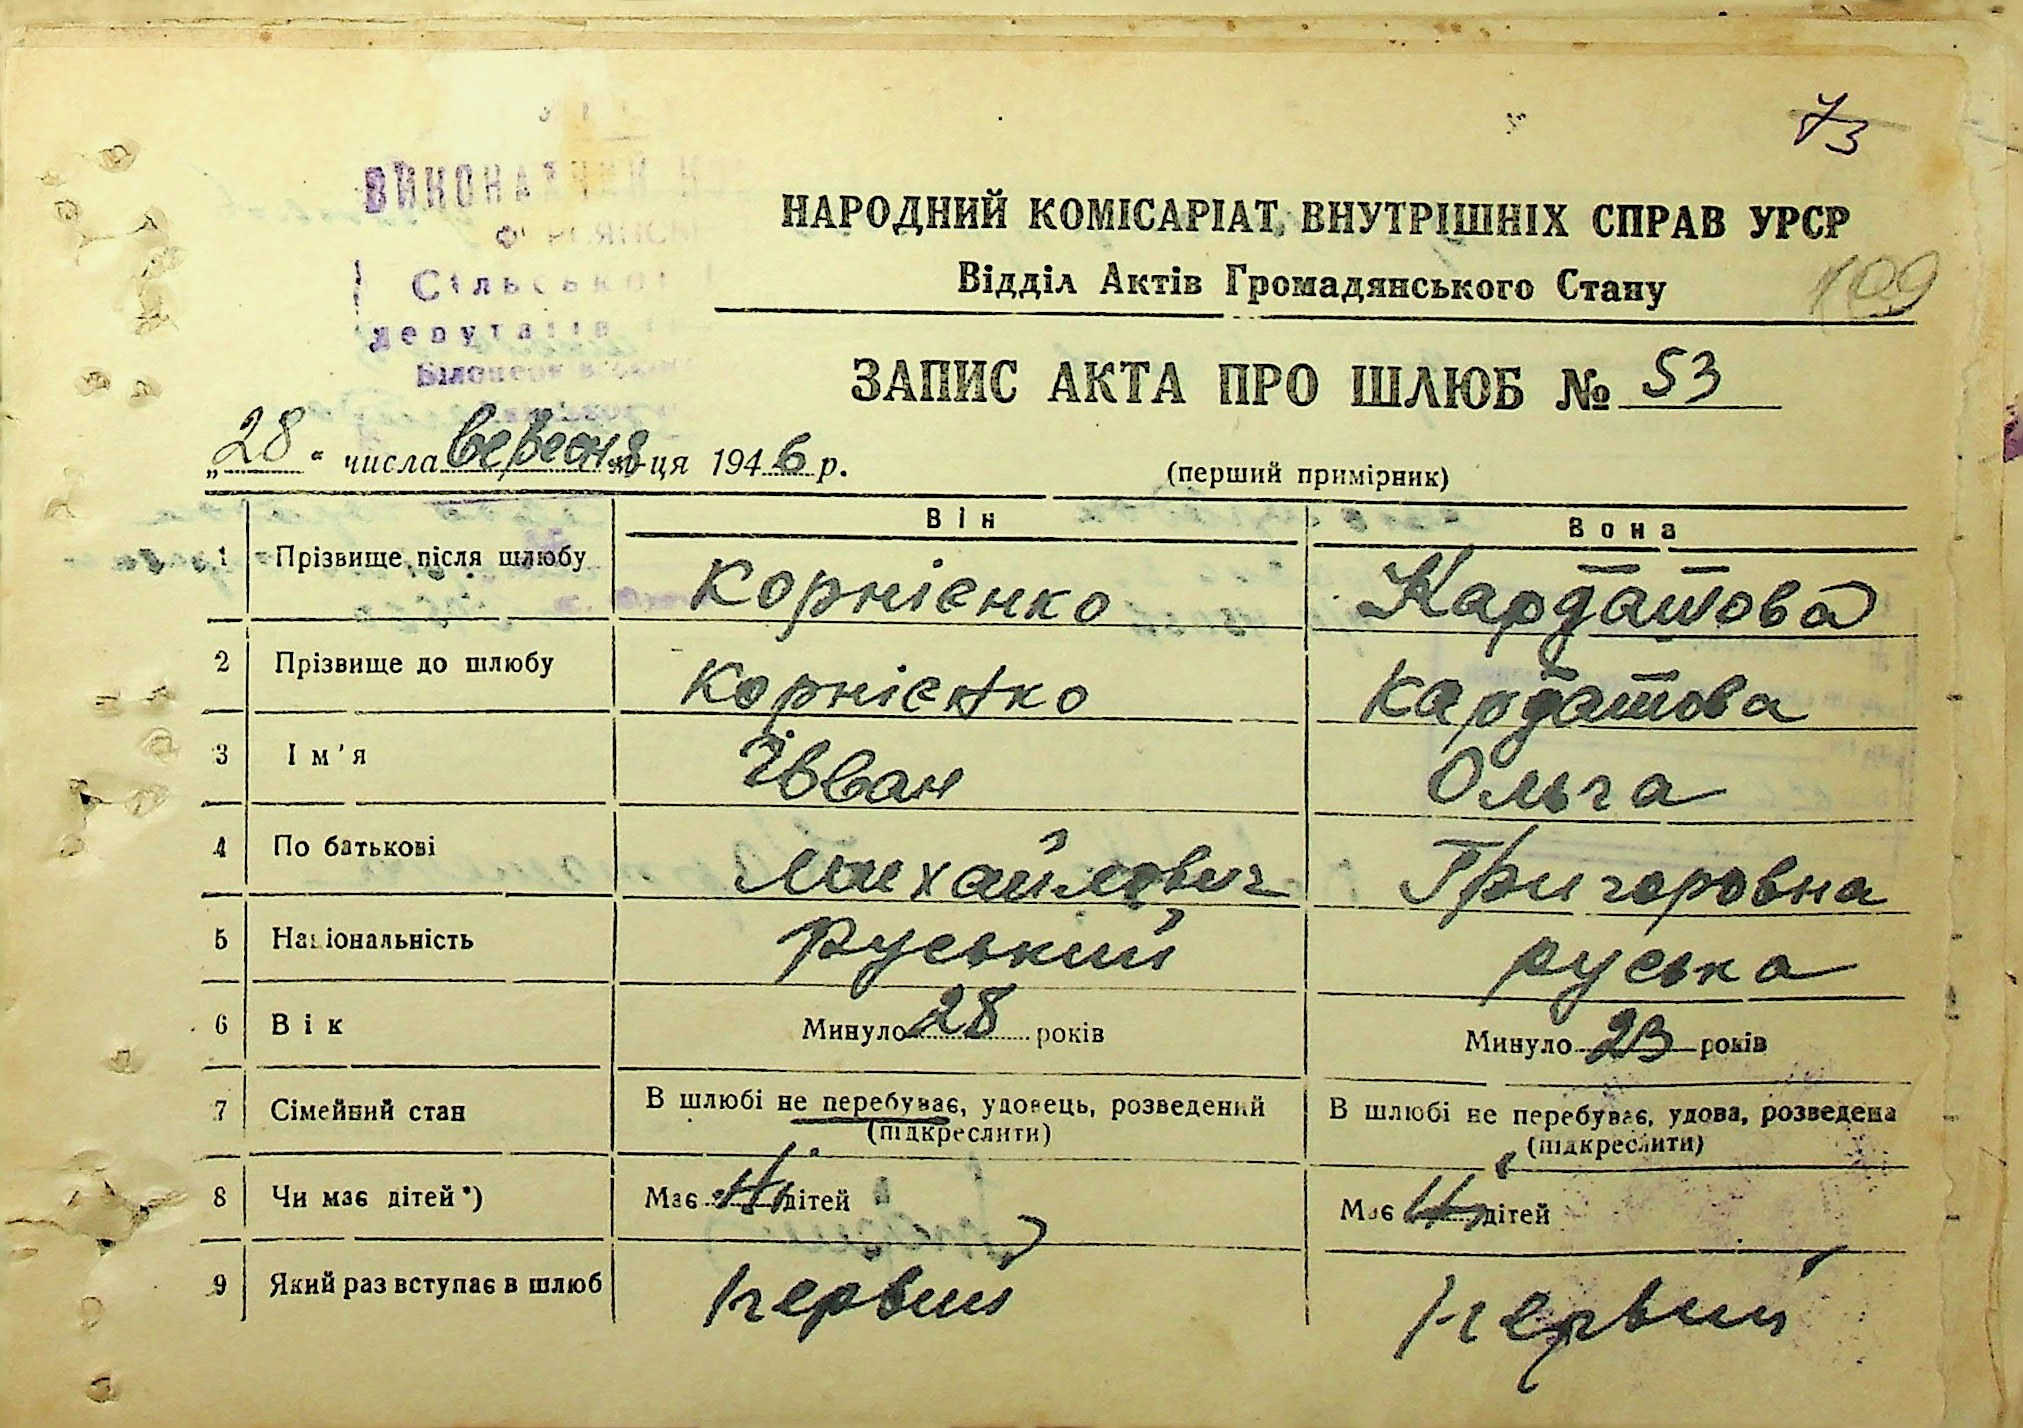 73
НАРОДНИЙ КОМІСАРІАТ ВНУТРІШНІХ СПРАВ УРСР
Відділ Актів Громадянського Стану
109
Сільської
депутатів
ЗАПИС АКТА ПРО ШЛЮБ № 53
„28“ числа вересня м-ця 1946 р.
(перший примірник)
Він Вона
1 Прізвище після шлюбу Корнієнко Кардашова
2 Прізвище до шлюбу Корнієнко Кардашова
3 Ім'я Іван Ольга
4 По батькові Михайлович Григоровна
5 Національність руський руська
6 Вік Минуло 28 років Минуло 23 років
7 Сімейний стан В шлюбі не перебуває, удовець, розведений (підкреслити) В шлюбі не перебуває, удова, розведена (підкреслити)
8 Чи має дітей*) Має Ні дітей Має Ні дітей
9 Який раз вступає в шлюб первий первий